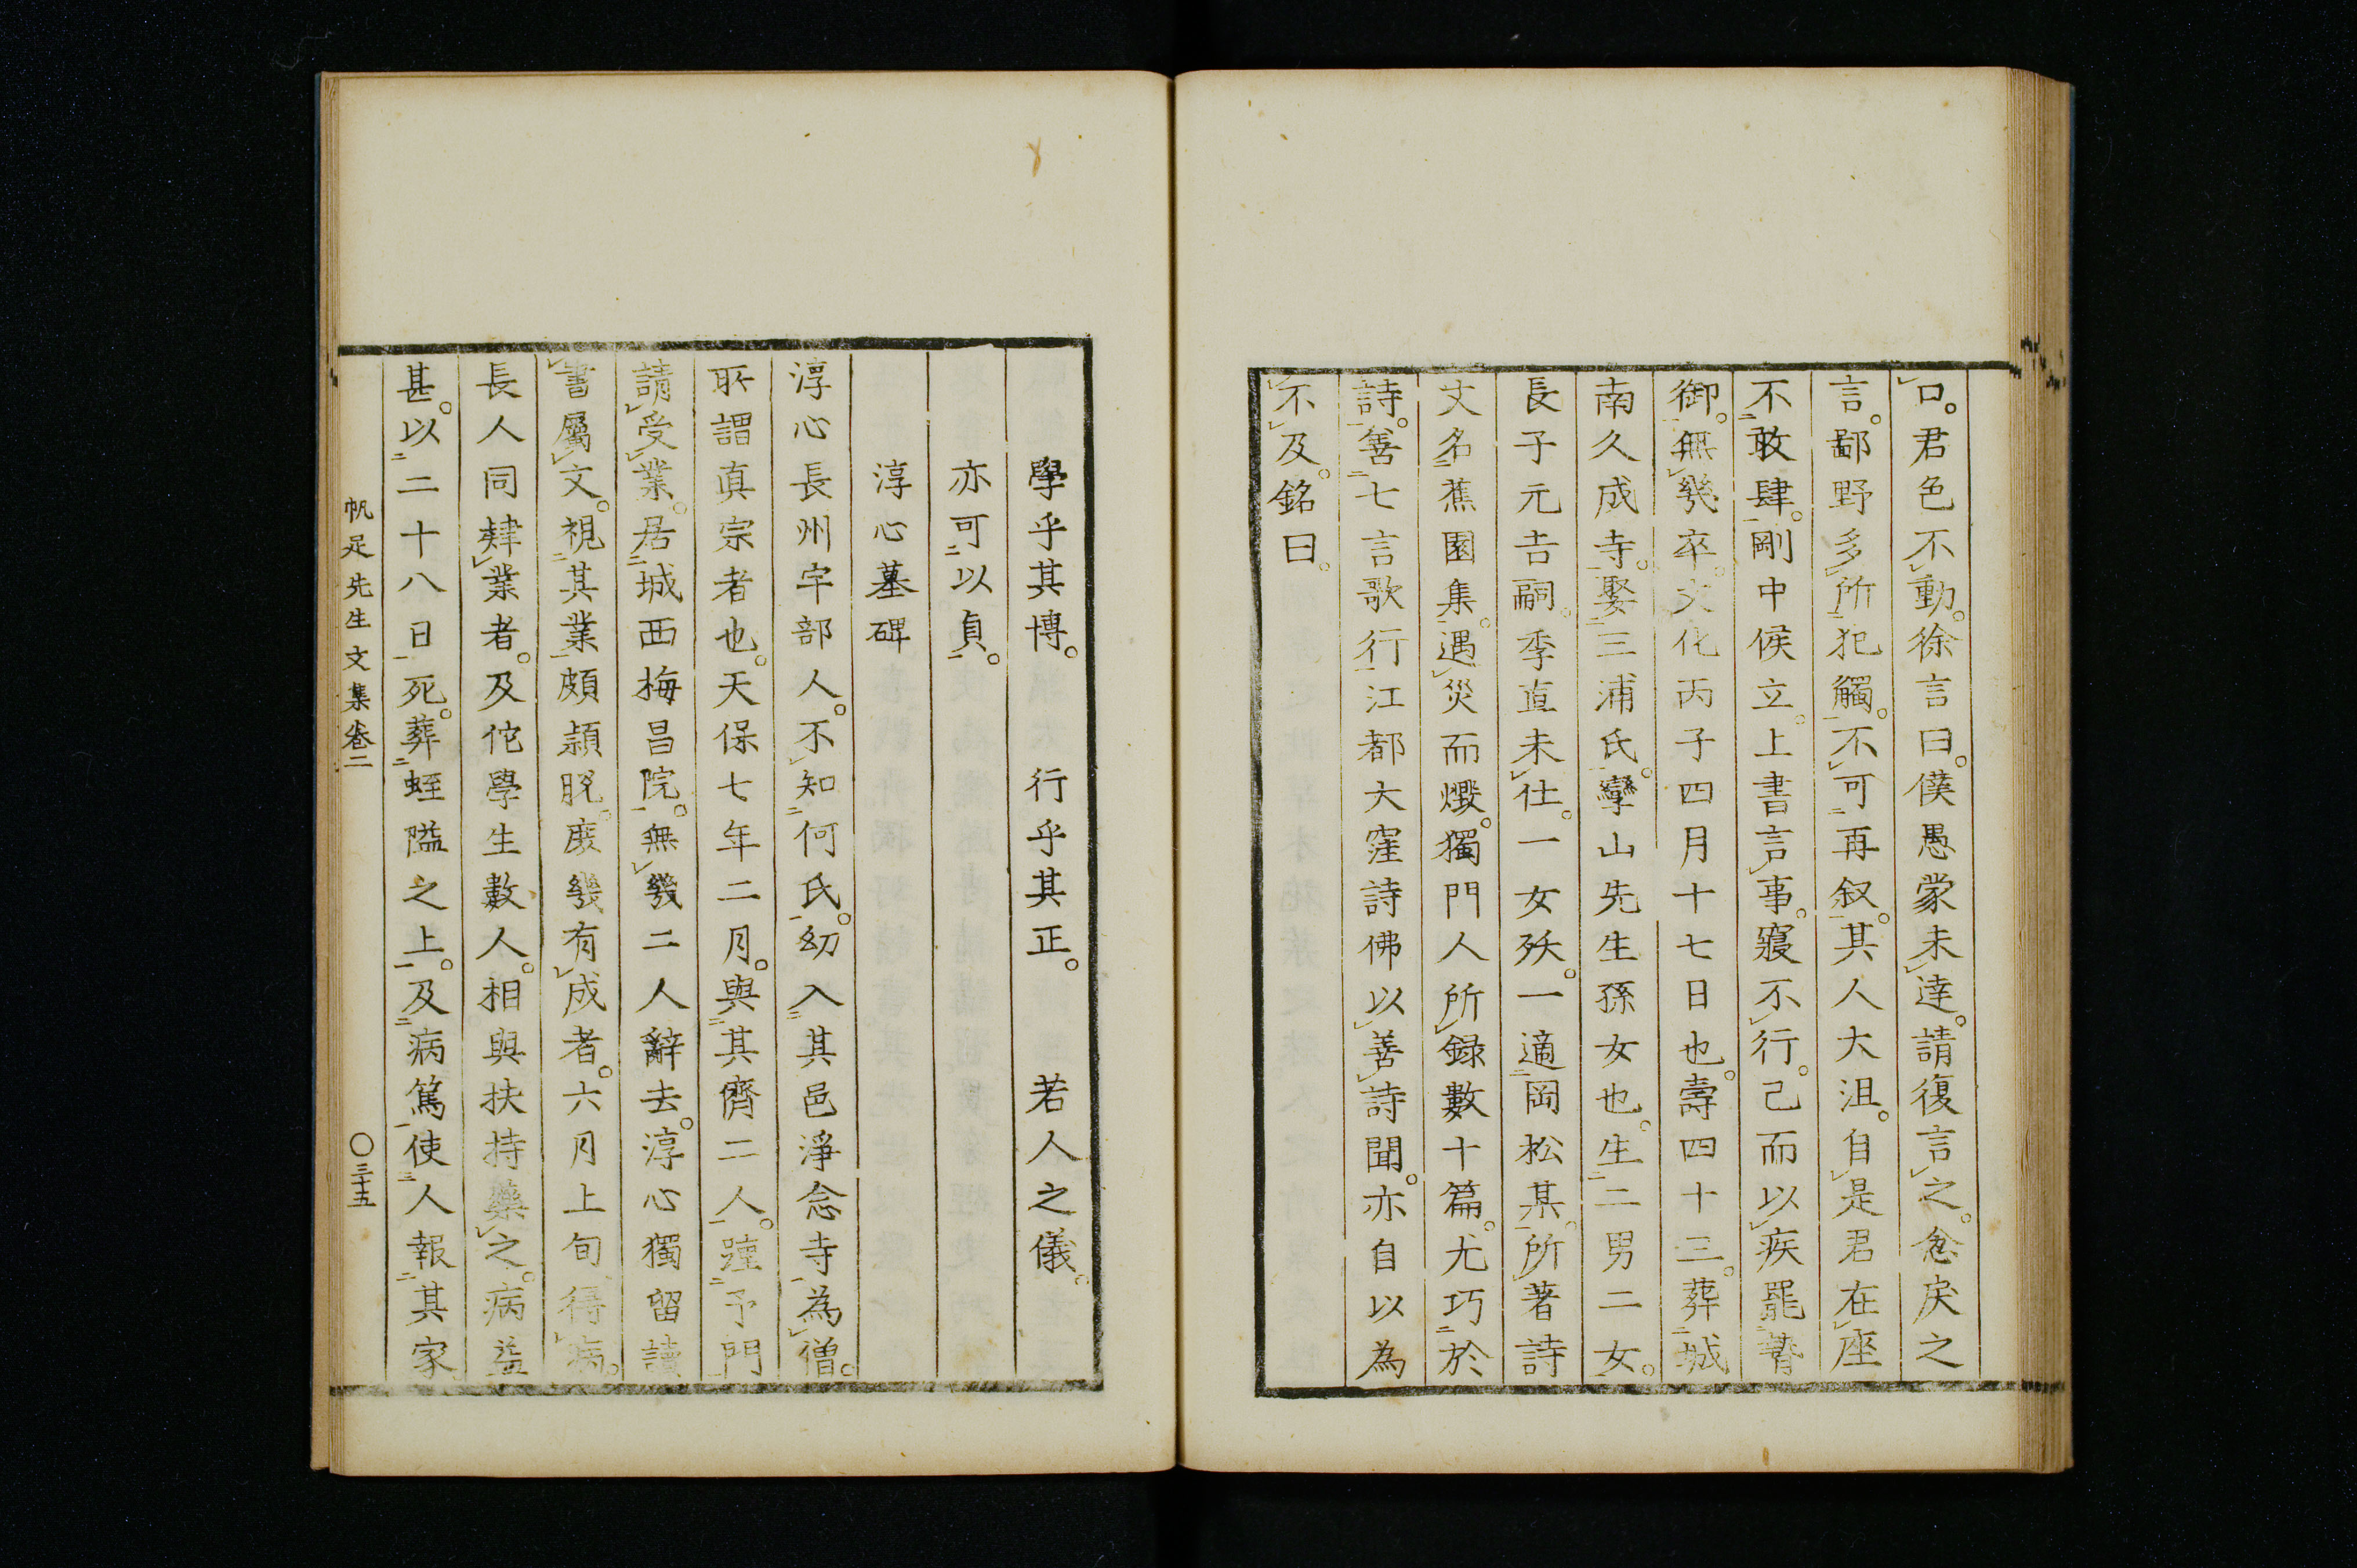 口。君色不動。徐言曰。僕愚蒙未達。請復言之。忿戾之
言。鄙野多所犯觸。不可再叙。其人大沮。自是君在座
不敢肆。剛中侯立。上書言事。寢不行。己而以疾罷
御。無幾卒。文化丙子四月十七日也。壽四十三。葬城
南久成寺。娶三浦氏。孿山先生孫女也。生二男二女。
長子元吉嗣。季直未仕。一女殀。一適岡松某。所著詩
文名蕉園集。遇災而燬。獨門人所録數十篇。尤巧於
詩。善七言歌行。江都大窪詩佛以善詩聞。亦自以為
不及。銘曰。
學乎其博。 行乎其正。 若人之儀。
亦可以貞。
淳心墓碑
淳心長州宇部人。不知何氏。幼入其邑淨念寺為僧。
所謂真宗者也。天保七年二月。與其儕二人。踵予門
請受業。居城西梅昌院。無幾二人辭去。淳心獨留讀
書屬文。視其業頗穎脱。庶幾有成者。六月上旬得病。
長人同肄業者。及佗學生數人。相與扶持藥之。病益
甚。以二十八日死。葬蛭隘之上。及病篤使人報其家
帆足先生文集卷二 〇三十五